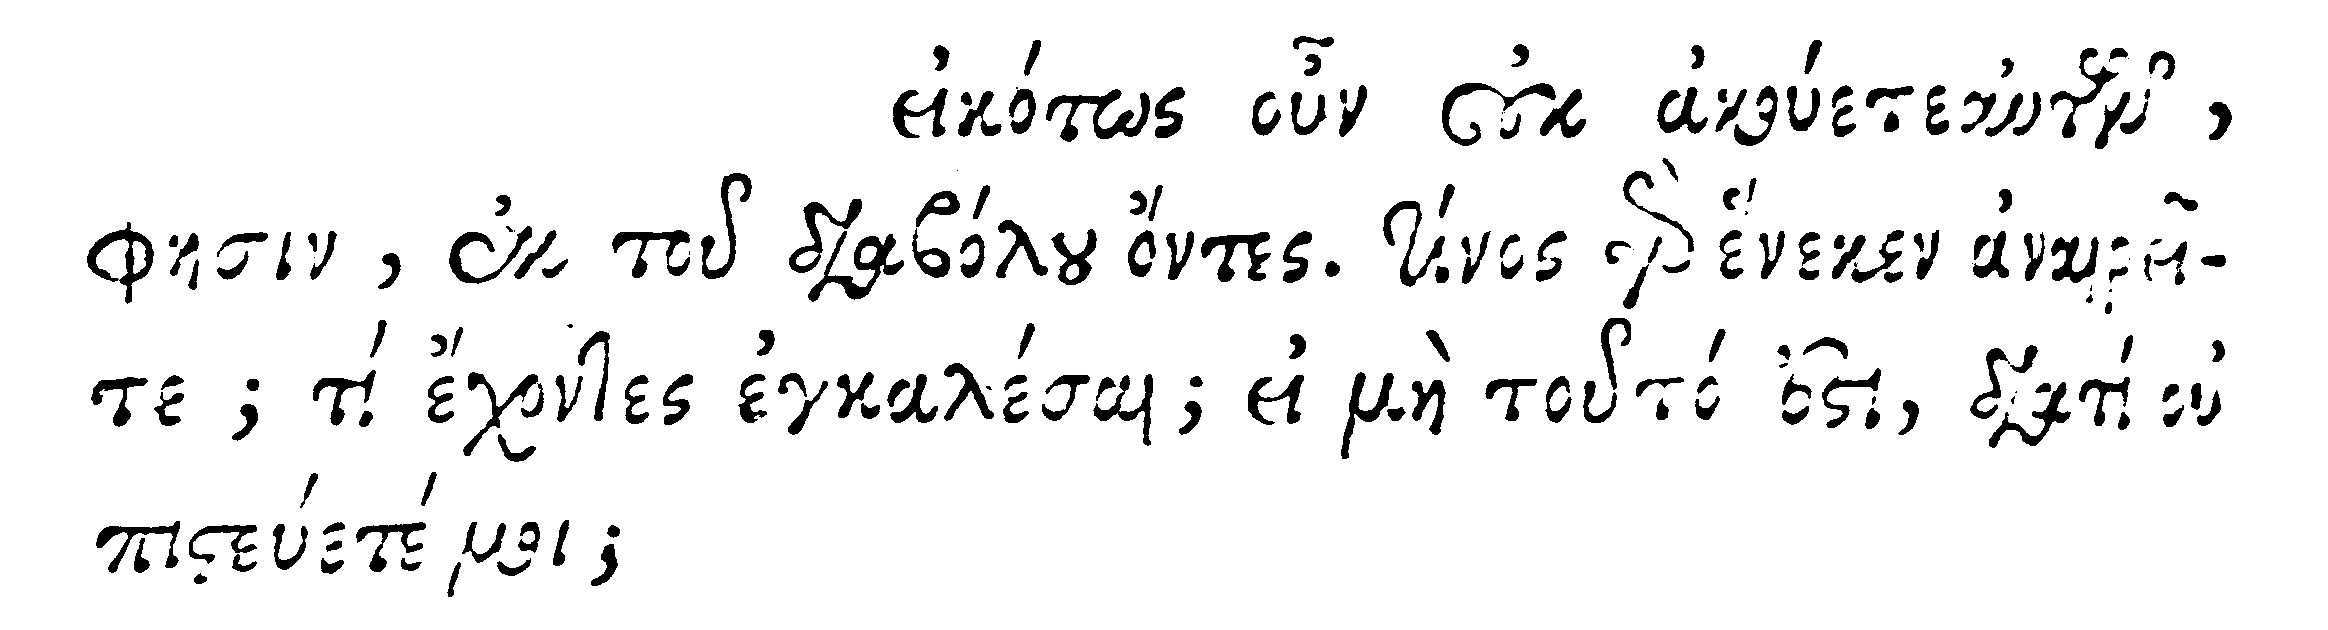 εἰκότως οὖν οὐκ ἀκούετε αὐτῶν,
φησιν, ἐκ τοῦ διαβόλου ὄντες. τίνος γὰρ ἕνεκεν ἀναιρεῖ-
τε; τί ἔχοντες ἐγκαλέσαι; εἰ μὴ τοῦτό ἐστι, διατί οὐ
πιστεύετέ μοι;